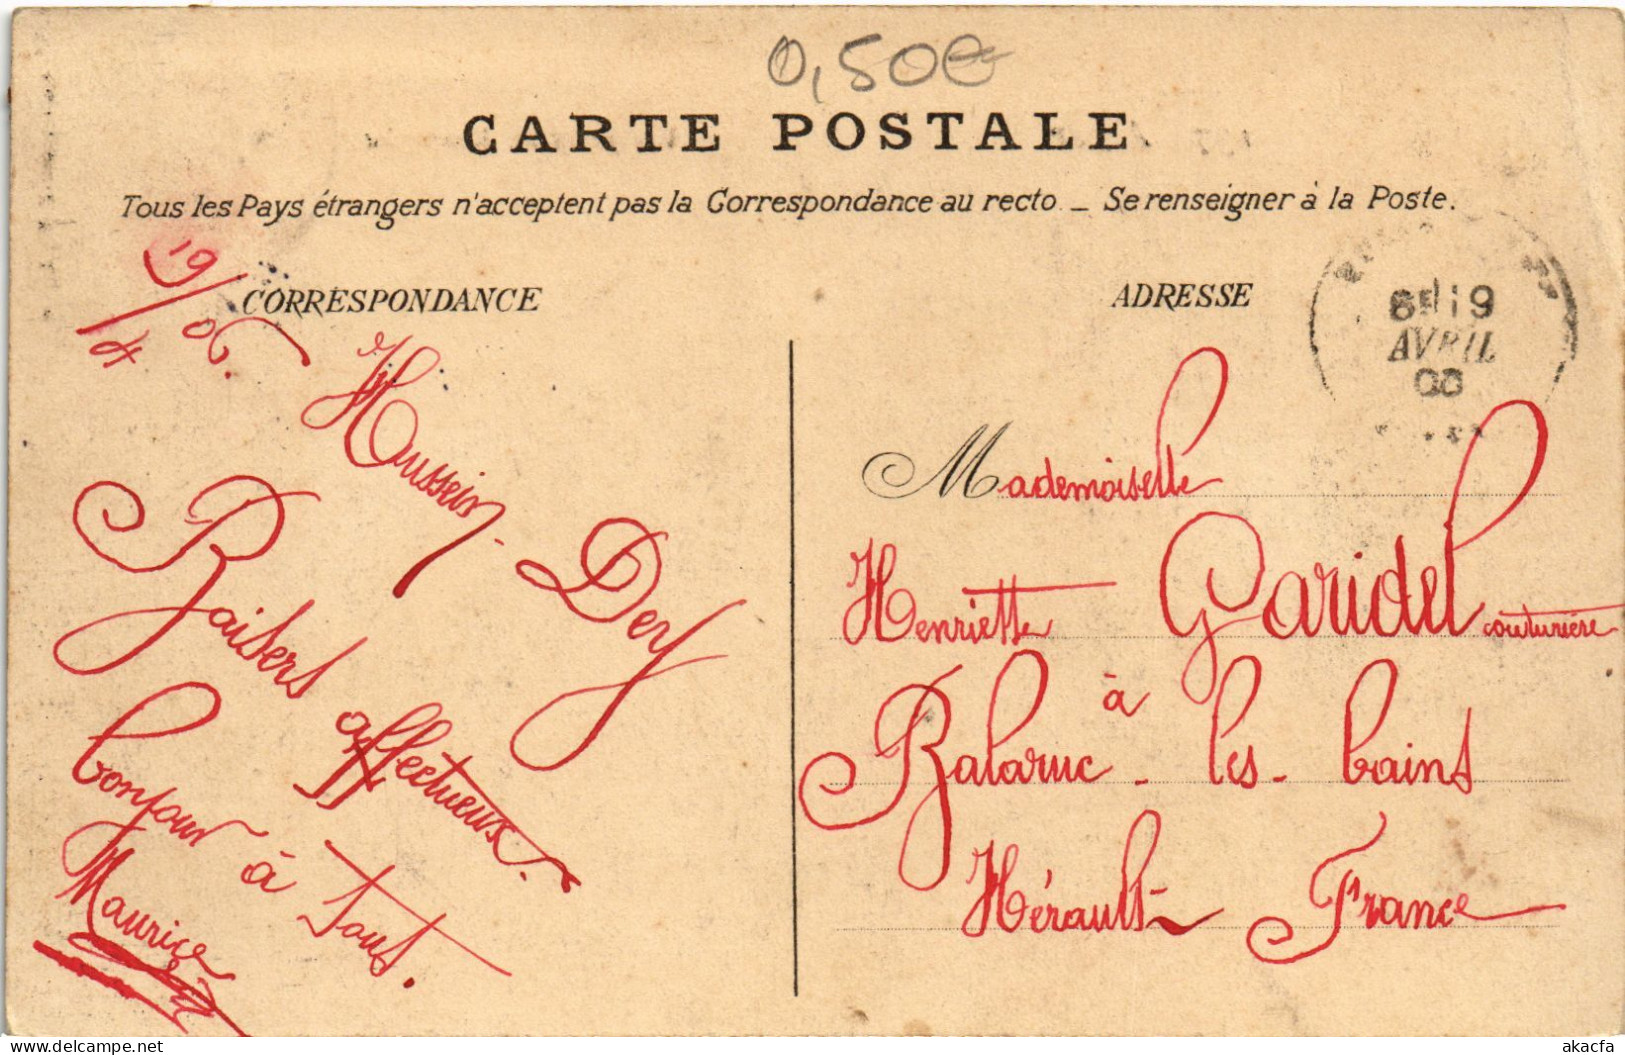 0,50€
CARTE POSTALE
Tous les Pays étrangers n'acceptent pas la Correspondance au recto. _ Se renseigner à la Poste.
CORRESPONDANCE
19/4 06.
Hussein-Dey
Baisers affectueux.
bonjour à tous.
Maurice
ADRESSE
19
AVRIL
06
Mademoiselle
Henriette Garidel couturière
à
Balaruc-les-bains
Hérault- France
akacfa